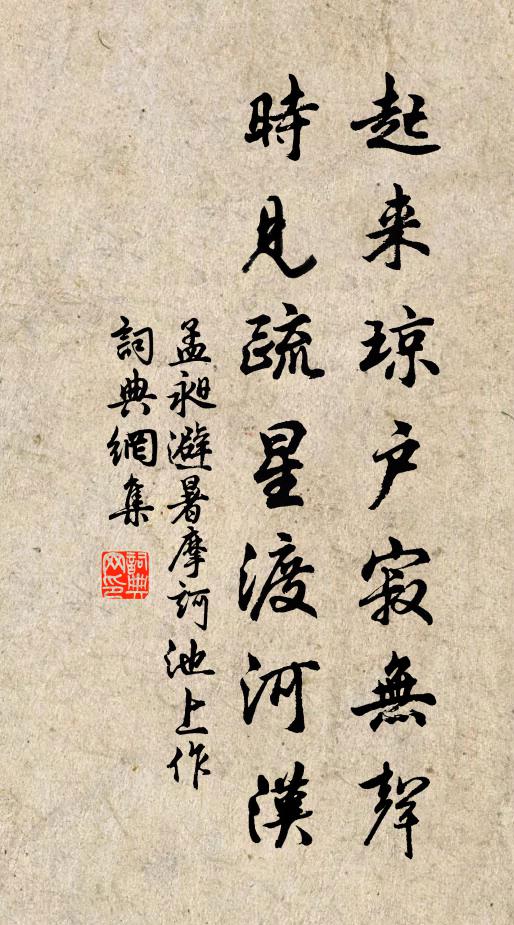 起来琼户寂無聲
時見疏星渡河漢
孟昶避暑摩訶池上作
詞典網集
詞典网印